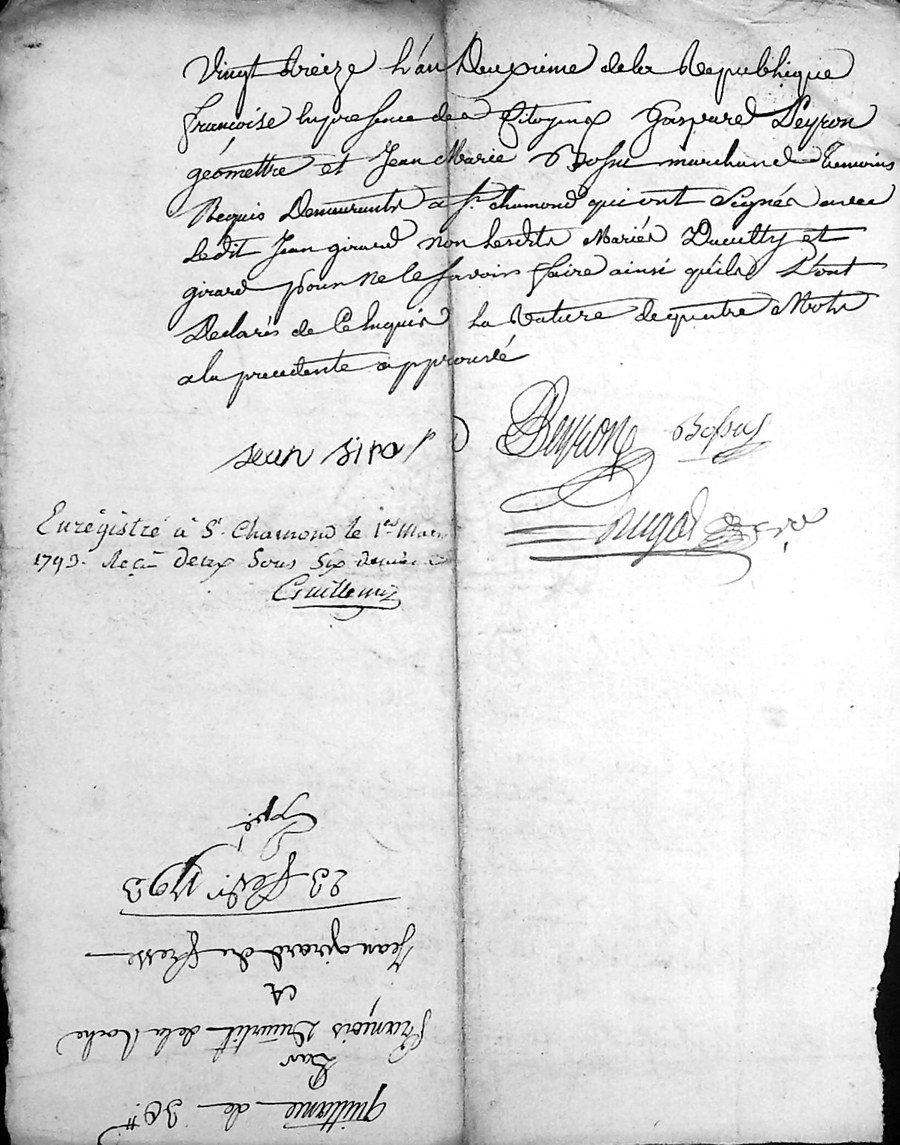 Vingt treize L'an Deuxieme de la Republique
francoise En presence des Citoyens Gaspard Peyron
géomettre et Jean Marie Bossu marchand temoins
Requis Demeurants a St. chamond qui ont Signés avec
Ledit Jean girard non Lesdits Mariés et
girard pour ne le Savoir faire ainsi qu'ils L'ont
Declarés de Ce Enquis La Rature de quatre Mots
a la precedente approuvée
jean Gira D Peyron Bossu
Dugas
Enregistré à St. Chamond le 1er Mars
1793. Reçu deux Sous Six deniers
Guillemin
quittance de 30 tt
Par
François de la Roche
et
Jean girard du fresse
23 fevr. 1793
Expé.